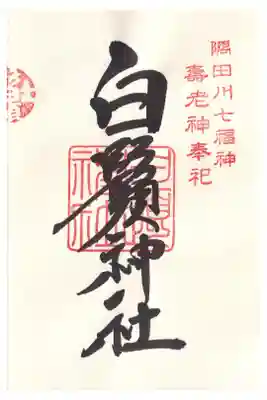 隅田川七福神
壽老神奉祀
白鬚神社